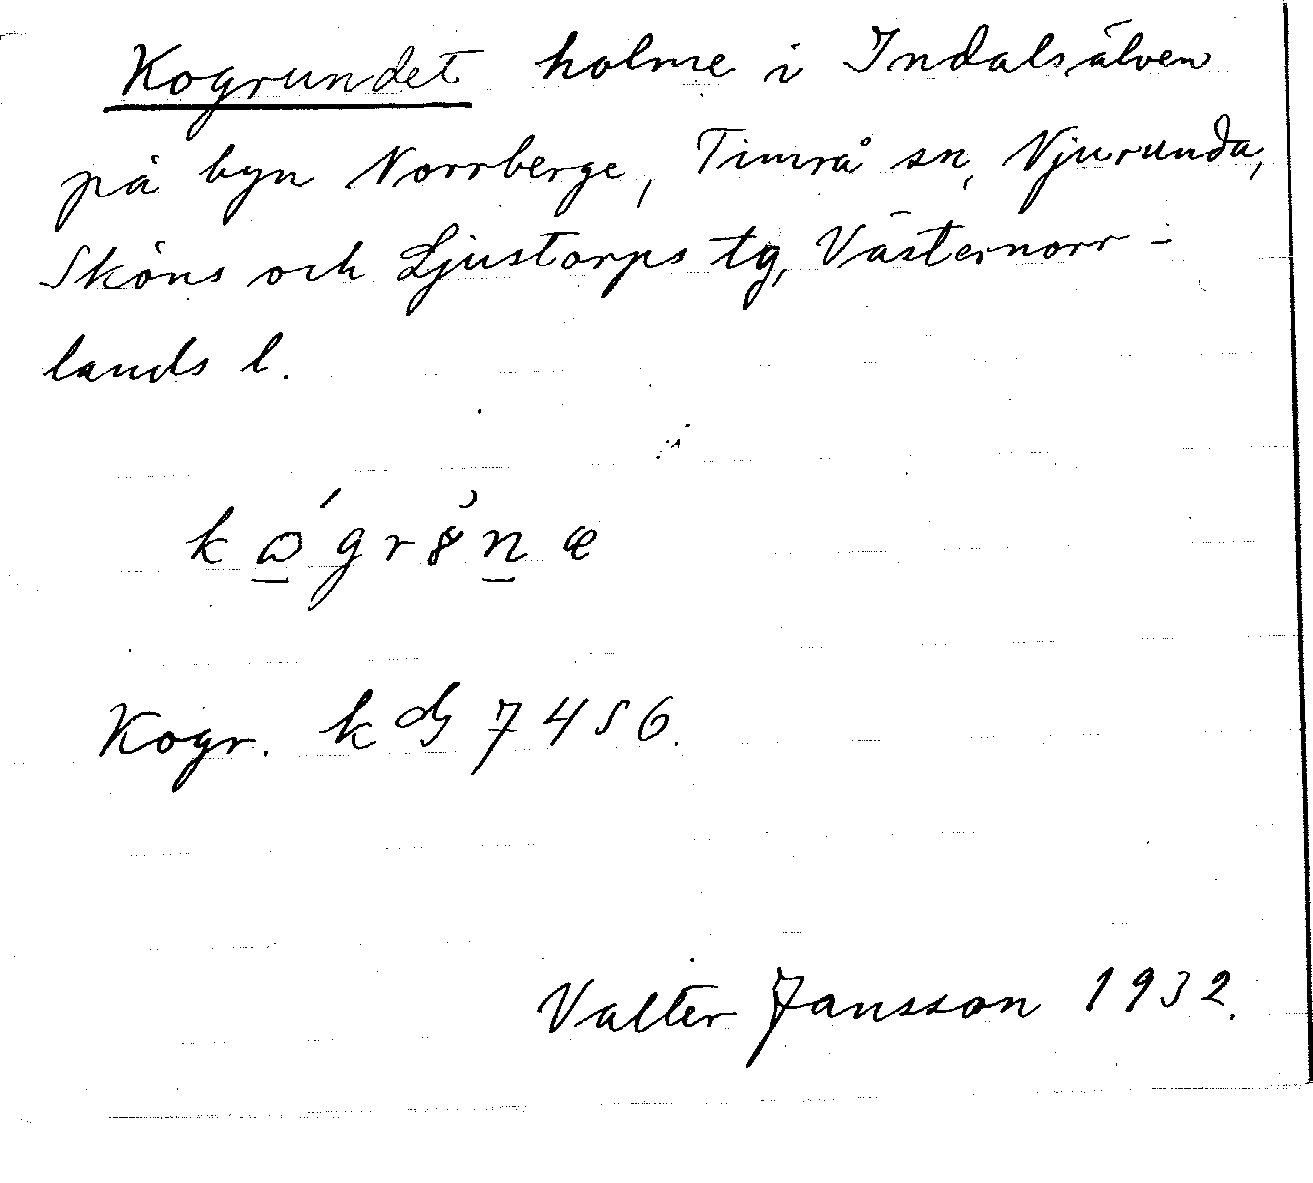 Kogrundet holme i Indalsälven
på byn Norrberge, Timrå sn, Njurunda,
Sköns och Ljustorps tg, Västernorr-
lands l.
Kogr. 7456.
Valter Jansson 1932.